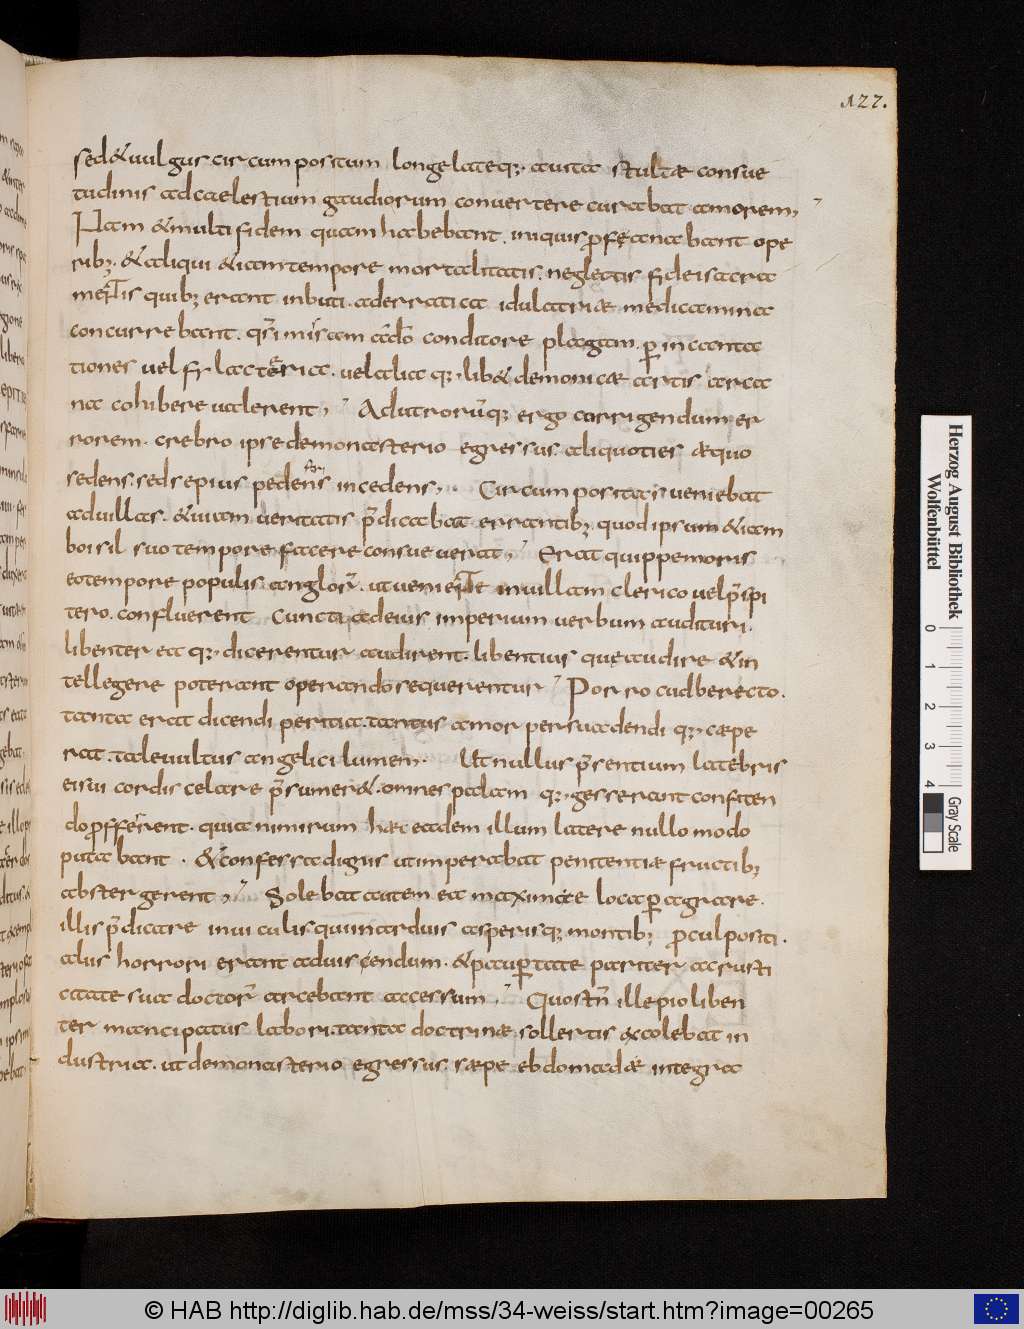 127.
sed & uulgus circumpositum longe lateq; a uita stultae consue
tudinis ad caelestium gaudiorum conuertere curabat amorem;
Nam & multi fidem quam habebant. iniquis profanabant ope
rib; & aliqui & iam tempore mortalitatis. neglectis fidei sacra
mentis quib; erant inbuti. ad erratica idulatriae medicamina
concurrebant. q̄si missam a dō conditore plagam. ꝑ incanta
tiones uel fylacteria. uel alia q; lib& demonicae artis arca
na cohibere ualerent; Ad utrorūq; ergo corrigendum er
rorem. crebro ipse de monasterio egressus. aliquoties aequo
sedens. sed sepius pedens incedens; Circumpositas ueniebat
ad uillas. & uiam ueritatis p̄dicabat errantib; quod ipsum & iam
boisil suo tempore facere consueuerat; Erat quippe moris
eo tempore populis anglor̄. ut ueniente in uillam clerico uel p̄sipi
tero. confluerent Cuncti ad eius imperium uerbum audituri.
libenter ea q; dicerentur audirent. libentius que audire & in
tellegere poterant operando sequerentur Porro cudberecto.
tanta erat dicendi peritia. tantus amor persuadendi q; caepe
rat. tale uultus angelici lumen. Ut nullus p̄sentium latebris
ei sui cordis celare p̄sumer&. omnes palam q; gesserant confiten
do proferrent. quia nimirum haec eadem illum latere nullo modo
putabant. & confessa dignis ut imperabat penitentiae fructib;
abstergerent; Solebat autem ea maxime loca ꝑagrare.
illis p̄dicare in uiculis. qui in arduis asperisq; montib; procul positi.
alus horrori erant ad uisendum. & pauꝑtate pariter ac rusti
citate sua doctor̄ arcebant accessum; Quos tn̄ ille pio liben
ter mancipatus labori. tanta doctrinae sollertis excolebat in
dustria. ut de monasterio egressus. saepe ebdomadae integra
Herzog August Bibliothek
Wolfenbüttel
0 1 2 3 4
Gray Scale
© HAB http://diglib.hab.de/mss/34-weiss/start.htm?image=00265